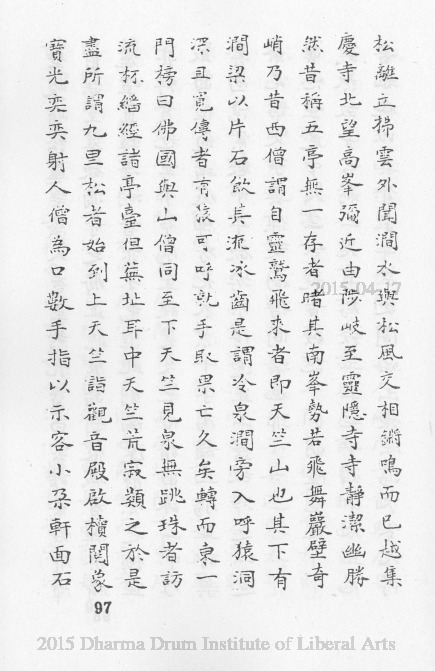 松離立掃雲外聞澗水與松風交相鏘鳴而已越集
慶寺北望高峯彌近由陟岐至靈隱寺寺靜潔幽勝
然昔稱五亭無一存者睹其南峯勢若飛舞巖壁奇
峭乃昔西僧謂自靈鷲飛來者即天竺山也其下有
澗梁以片石飲其流冰齒是謂冷泉澗旁入呼猿洞
深且寬傳者有猿可呼就手取果亡久矣轉而東一
門榜曰佛國與山僧同至下天竺見泉無跳珠者訪
流杯繙經諸亭臺但蕪址耳中天竺荒寂類之於是
盡所謂九里松者始到上天竺詣觀音殿啟櫝閱象
寶光奕奕射人僧為口數手指以示客小朶軒面石
97
2015-04-17
2015 Dharma Drum Institute of Liberal Arts